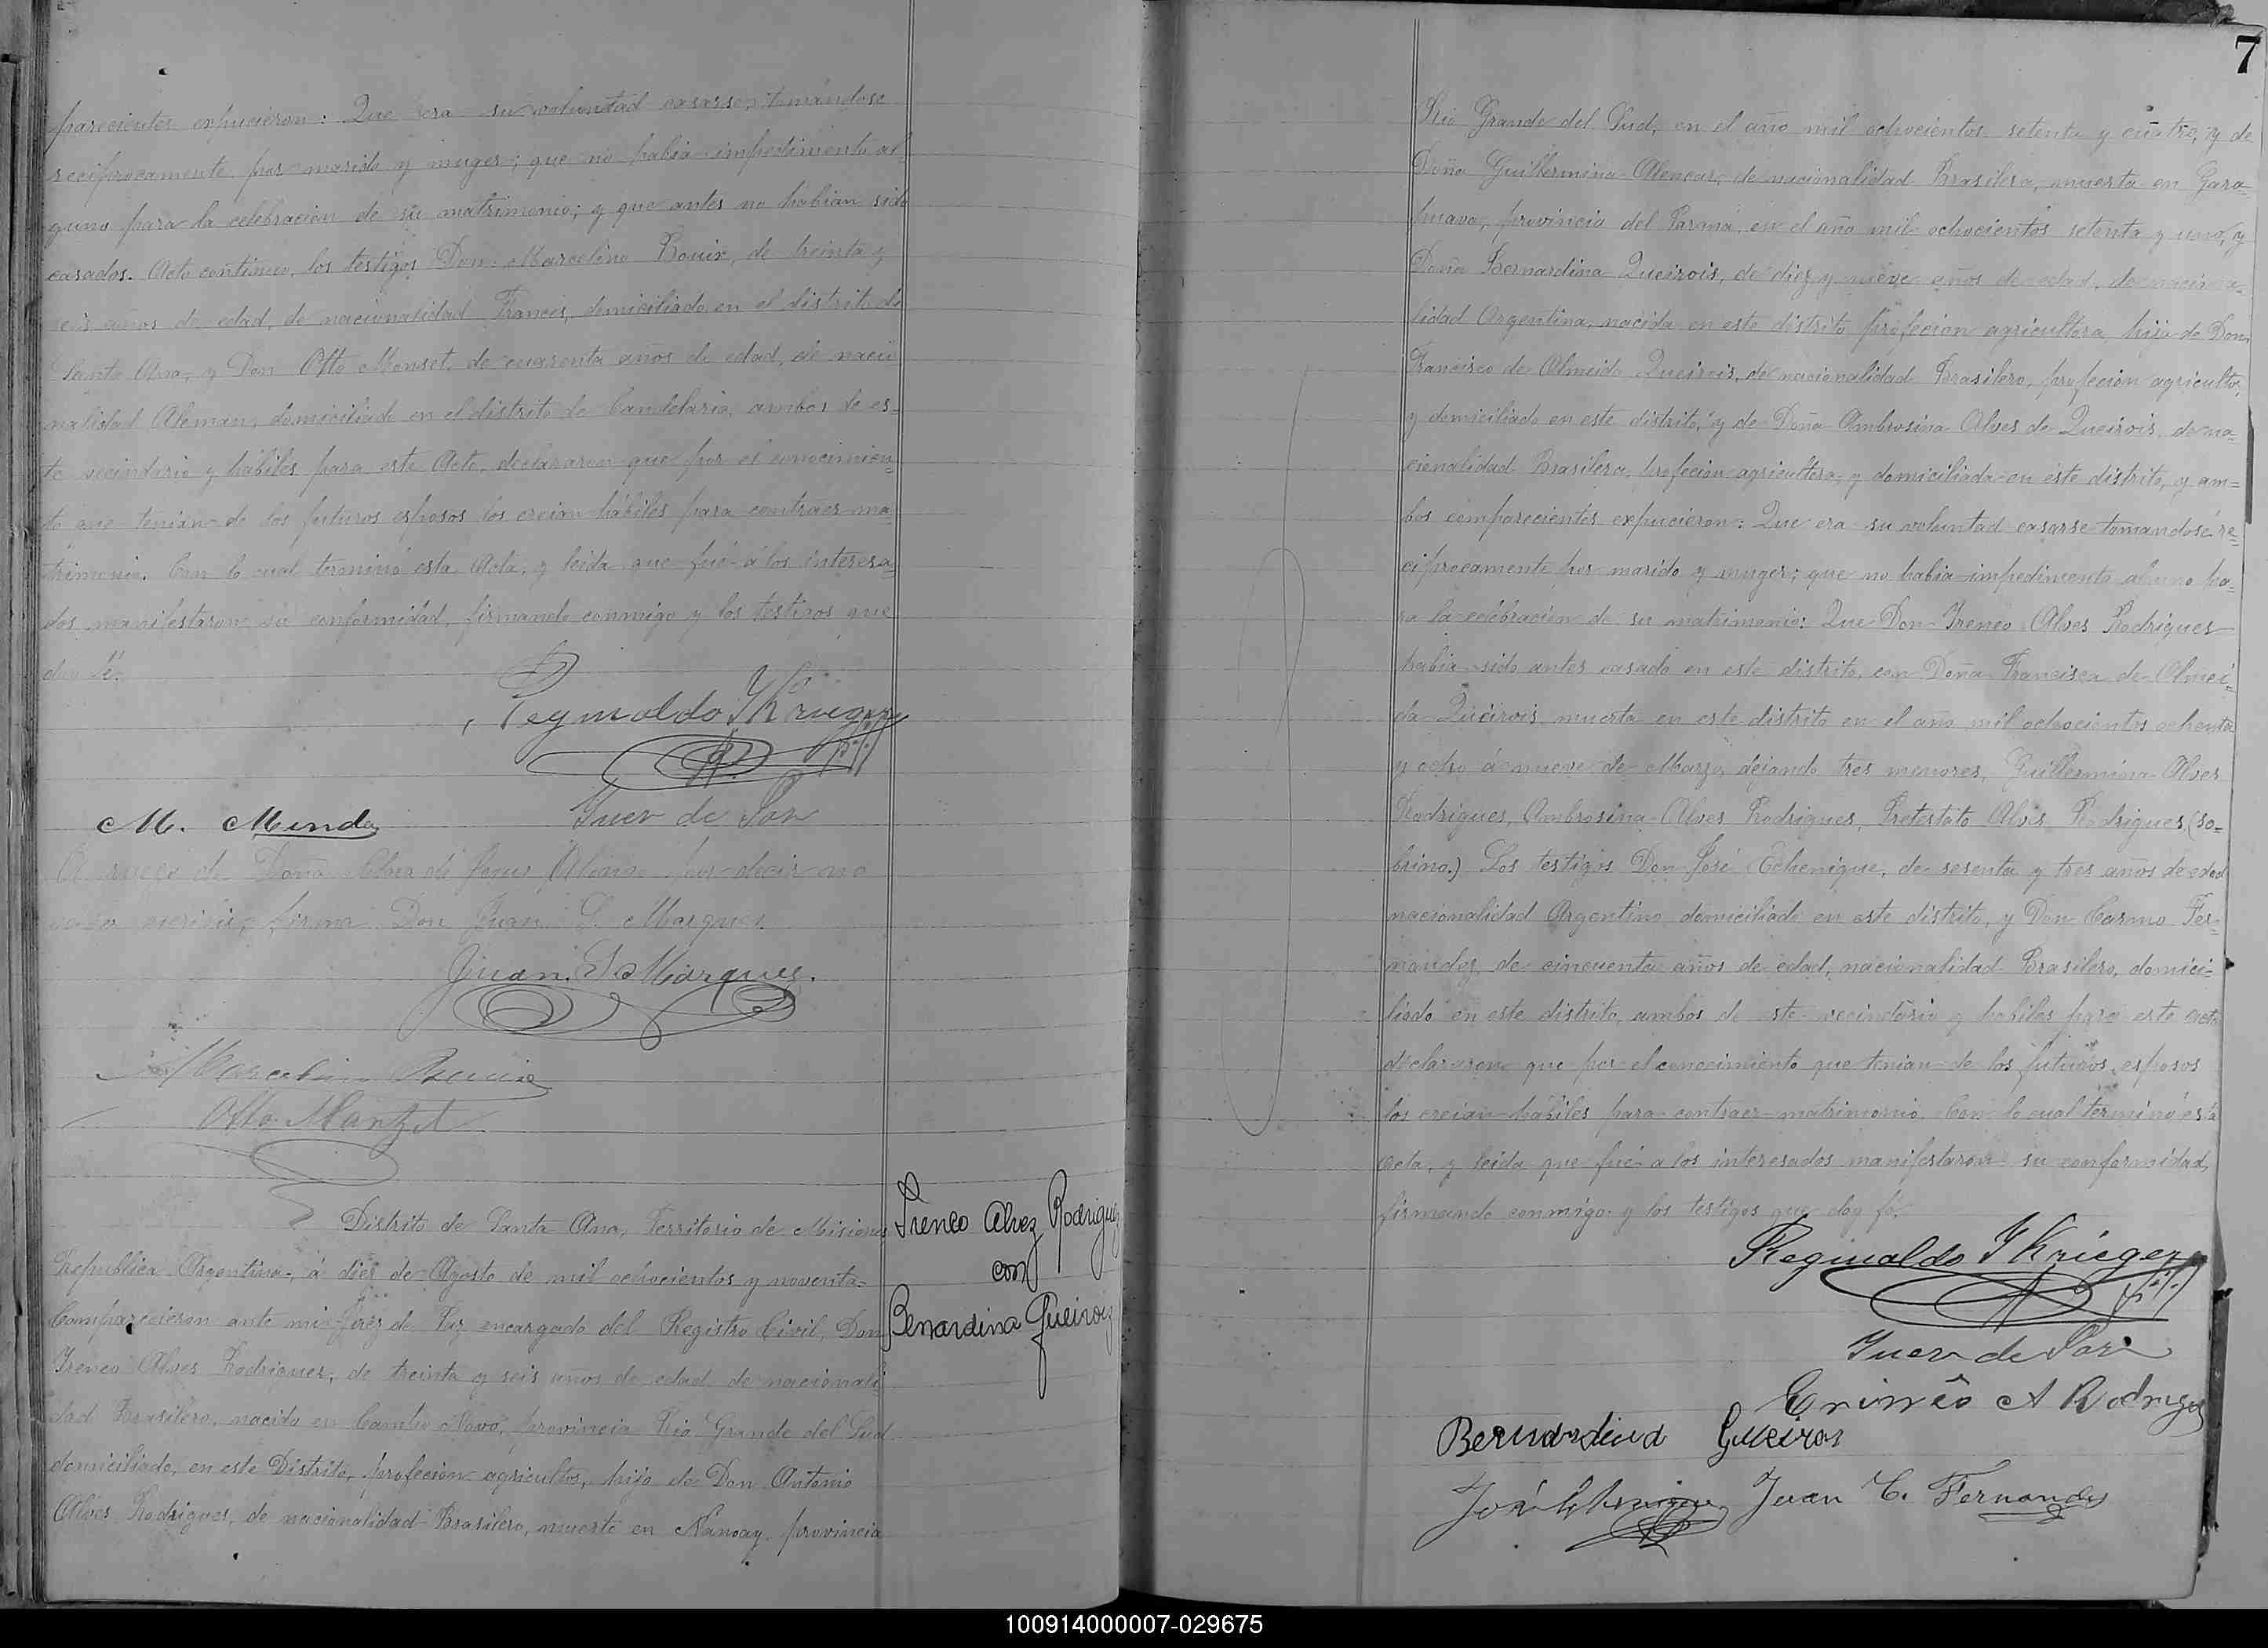 parecientes expucieron: Que era su voluntad casarse, tomandose
reciprocamente por marido y muger; que no habia impedimento al-
guno para la celebracion de su matrimonio; y que antes no habian sido
casados. Acto continuo, los testigos Don Marcelino Bouix, de treinta y
seis años de edad, de nacionalidad Frances, domiciliado en el distrito de
Santa Ana, y Don Otto Monset, de cuarenta años de edad, de nacio
nalidad Aleman, domiciliado en el distrito de Candelaria, ambos de es-
te vecindario y hábiles para este Acto, declararon que por el conocimien-
to que tenian de los futuros esposos los creian hábiles para contraer ma-
trimonio. Con lo cual terminó esta Acta, y leida que fué á los interesa-
dos manifestaron su conformidad, firmando conmigo y los testigos que
doy fé.
Reginaldo Krieger
Juez de Paz
M. Mendez
A ruego de Doña de Jesus por decir no
escribir, firma Don Juan S. Marques
Juan S. Marques.
Marcelin Bouix
Otto Manzet
Distrito de Santa Ana, Territorio de Misiones
Republica Argentina, á diez de Agosto de mil ochocientos y noventa=
Comparecieron ante mi Juez de Paz encargado del Registro Civil, Don
Ireneo Alves Rodrigues, de treinta y seis años de edad de nacionali
dad Brasilero, nacido en Novo, provincia Rio Grande del Sud
domiciliado, en este Distrito, profecion agricultor, hijo de Don Antonio
Alves Rodrigues, de nacionalidad Brasilero, muerto en Nonoay provincia
Ireneo Alvez Rodriguez
con
Benardina Queiroiz
7
Rio Grande del Sud, en el año mil ochocientos setenta y cuatro, y de
Doña Guillermina Alencar, de nacionalidad Brasilera, muerta en Gara-
puava, provincia del Paraná, en el año mil ochocientos setenta y uno, y
Doña Bernardina Queirois, de diez y nueve años de edad, de naciona-
lidad Argentina, nacida en este distrito, profecion agricultora, hija de Don
Francisco de Almeida Queirois, de nacionalidad Brasilero, profecion agricultor,
y domiciliado en este distrito, y de Doña Ambrosina Alves de Queirois, de na-
cionalidad Brasilera, profecion agricultora, y domiciliada en este distrito, y am=
bos comparecientes expucieron: Que era su voluntad casarse tomandose re=
ciprocamente por marido y muger; que no habia impedimento alguno pa-
ra la celebracion de su matrimonio: Que Don Ireneo Alves Rodrigues
habia sido antes casado en este distrito, con Doña Francisca de Almei-
da Queirois muerta en este distrito en el año mil ochocientos ochenta
y ocho á nueve de Marzo, dejando tres menores, Guillermina Alves
Rodrigues, Ambrosina Alves Rodrigues, Pretestato Alves Rodrigues (so-
brino.) Los testigos Don José Echenique, de sesenta y tres años de edad
nacionalidad Argentino domiciliado en este distrito, y Don Carmo Fer-
nandez, de cincuenta años de edad, nacionalidad Brasilero, domici-
liado en este distrito, ambos de este vecindario y hábiles para este acto
declararon que por el conocimiento que tenian de los futuros esposos
los creian hábiles para contraer matrimonio. Con lo cual terminó esta
Acta, y leida que fué a los interesados manifestaron su conformidad,
firmando conmigo y los testigos que doy fé.
Reginaldo Krieger
Juez de Paz
Erinêo A Rodrigues
Bernardina Queiros
José Echenique Juan C. Fernandez
100914000007-029675